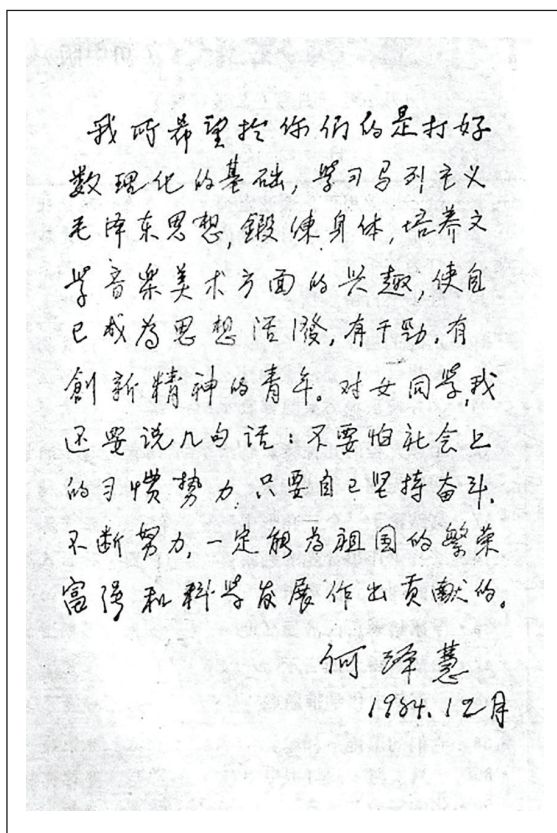 我所希望於你们的是打好
数理化的基础，学习马列主义
毛泽东思想，鍛倲身体，培养文
学音楽美术方面的兴趣，使自
己成为思想活潑，有干勁，有
創新精神的青年。对女同学，我
还要说几句话：不要怕社会上
的习惯势力，只要自己坚持奋斗，
不断努力，一定能为祖国的繁荣
富强和科学发展作出贡献的。
何泽慧
1984.12月